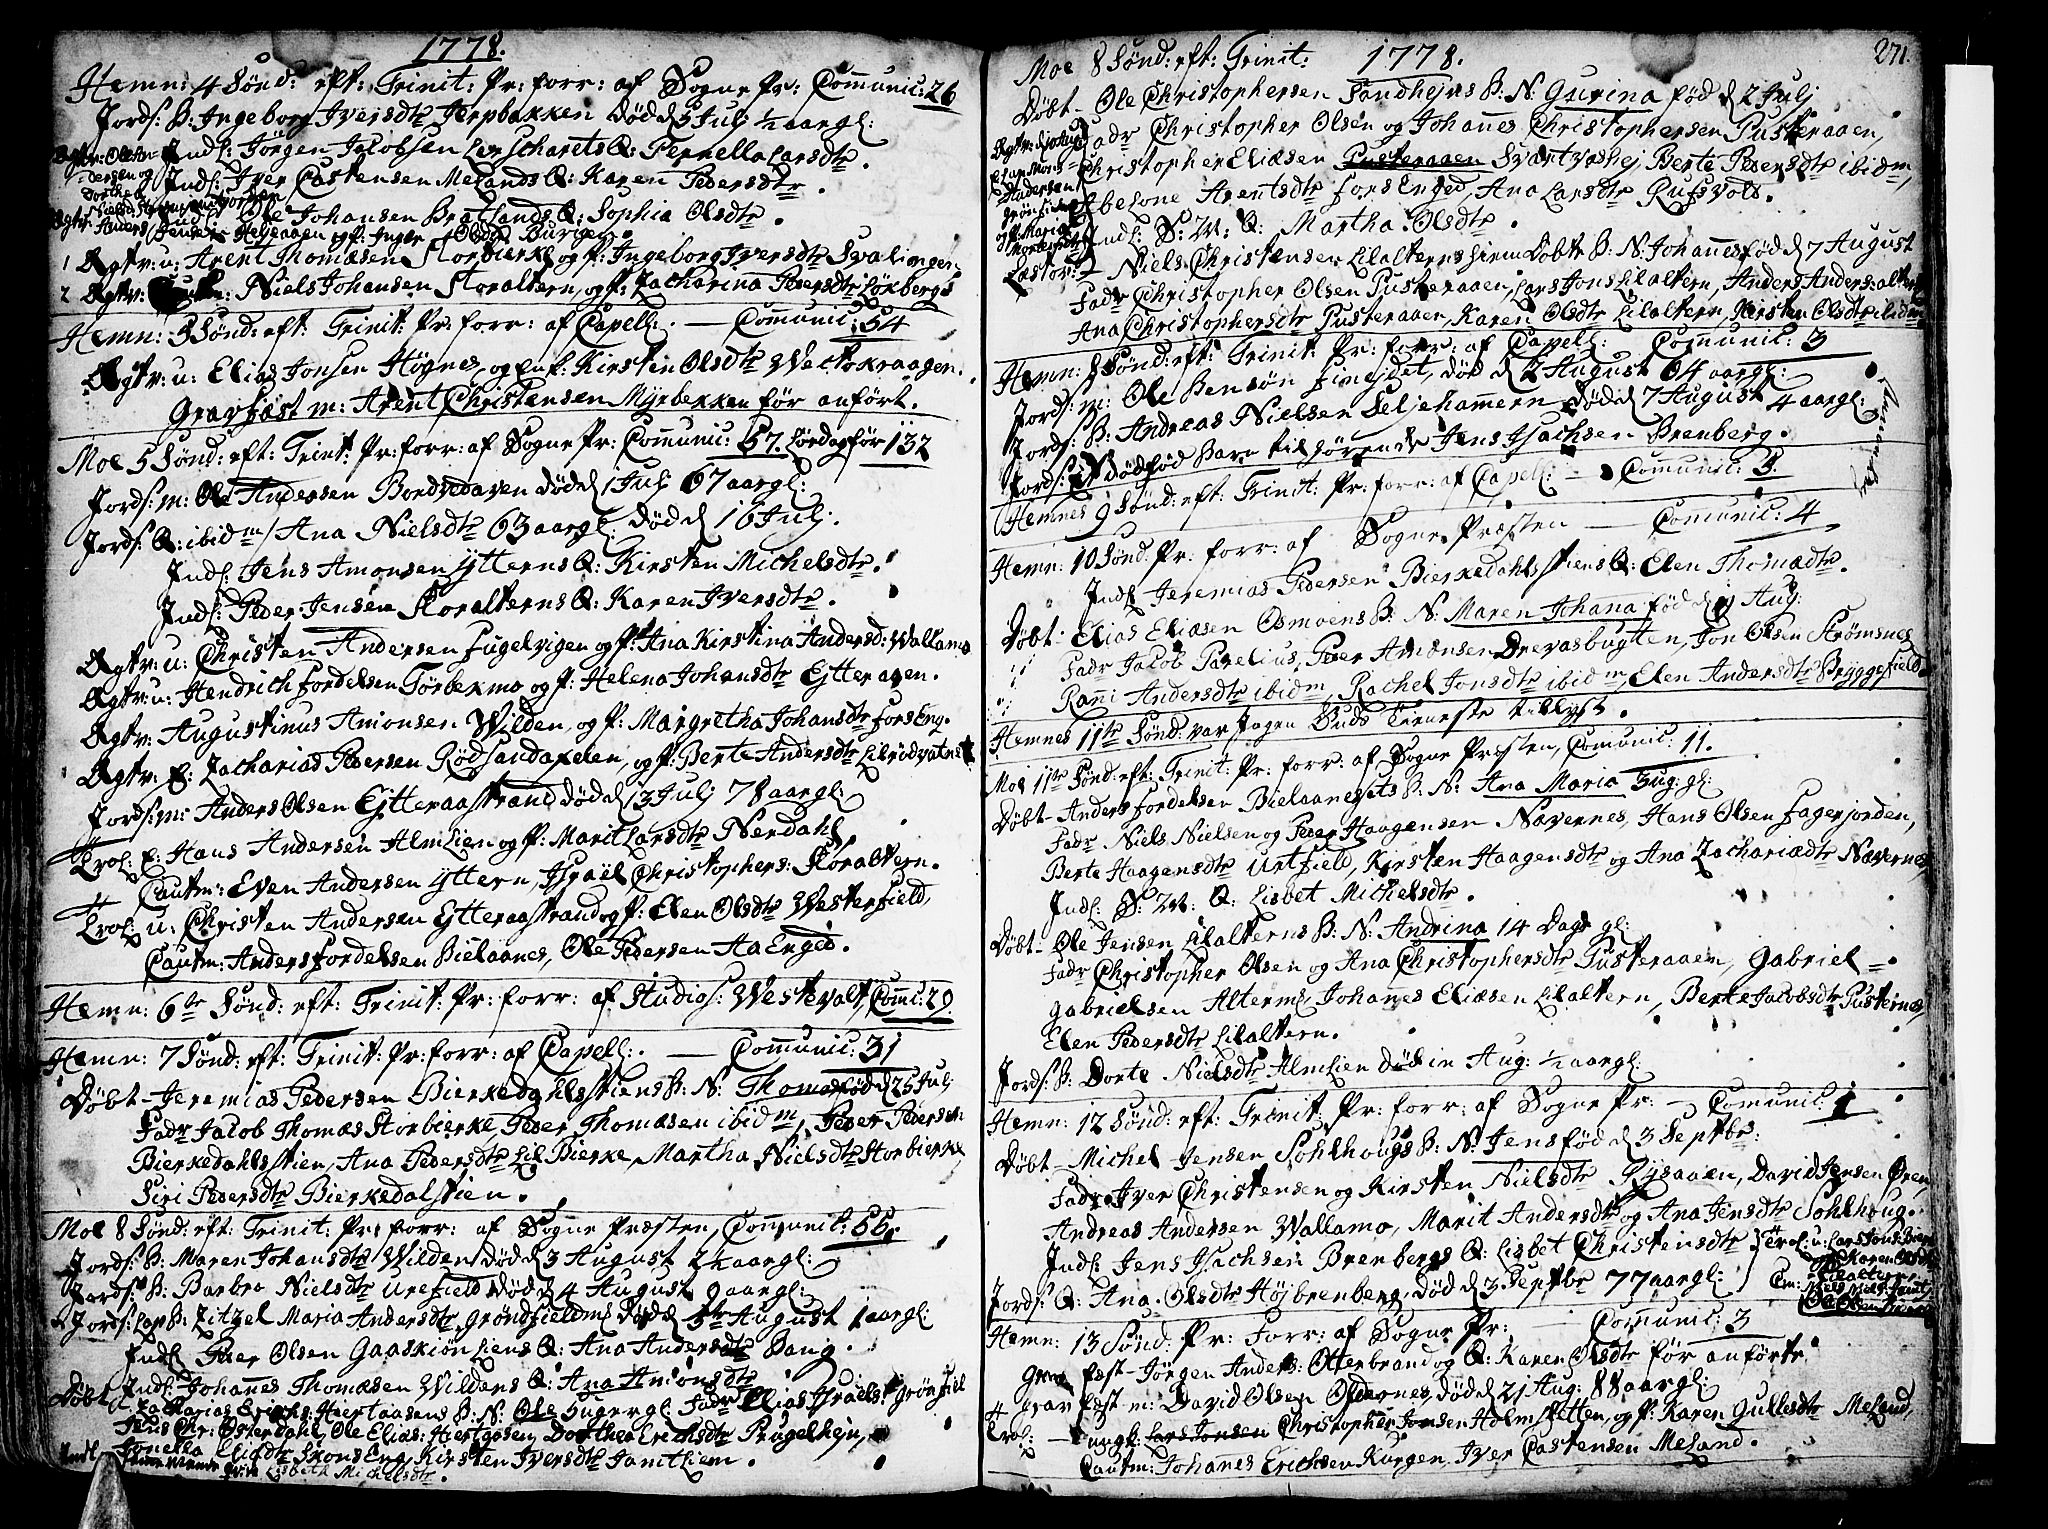 1778.
Hemn: 4 Sønd: eft: Trinit: Pr: forr: af Sogne Pr: Comunic: 26
Jords: B: Ingeborg Iversdtr Jerpbakken død d 5 Julj ½ aar gl:
Indl: Jörgen Jacobsen Q: Pernella Larsdtr.
Indl: Iver Castensen Melands Q: Karen Pedersdtr.
Ole Johansen Bratlands Q: Sophia Olsdtr.
1 Ægtv: u: Arent Thomæsen Storbierke og p: Ingeborg Iversdtr Svalingen
2 Ægtv: Niels Johansen Storaltern, og p: Zacharina Pedersdtr Løkbergs
Hemn: 5 Sønd: eft: Trinit: Pr: forr: af Capell: — Comunic: 54
Ægtv: u: Elias Jonsen Högnes, og Kirsten Olsdtr Weltokraagen.
Gravfæst m: Arent Christensen Myrbekken før anført.
Moe 5 Sønd: eft: Trinit: Pr: forr: af Sogne Pr: Comunic: 57. Lørdag før 132
Jords: m: Ole Andersen Bordvedaven død d 1 Julj 67 aar gl:
Jords: Q: ibidm Ana Nielsdtr 63 aar gl: død d 16 Julj.
Indl: Jens Amonsen Ytterns Q: Kirsten Michelsdtr.
Indl: Peder Jensen Storalterns Q: Karen Iversdtr.
Ægtv: u: Christen Andersen Fugelvigen og p: Ana Kirstina Andersd: Wallamo
Ægtv: u: Hendrich Fordelsen Törbekmo og p: Helena Johansdtr Ejtteraaen.
Ægtv: Augustinus Amonsen Wilden, og p: Margretha Johansdtr ForsEng.
Ægtv: E: Zacharias Pedersen Rödsandaxelen, og p: Berte Andersdtr Lilrödvatnet
Jords: m: Anders Olsen Ejtteraastrand død d 13 Julj 78 aar gl:
Trol: E: Hans Andersen Almlien og p: Marit Larsdtr Nerdahl,
Cautm: Even Andersen Yttern, Israël Christophers: Storaltern.
Trol: u: Christen Andersen Ejtteraastrand og p: Elen Olsdtr Westerfield,
Cautm: Anders Fordelsen Bielaanes, Ole Pedersen AaEnged.
Hemn: 6te Sønd: eft: Trinit: Pr: forr: af Studios: Westervalt, Comu: 29.
Hemn: 7 Sønd: eft: Trinit: Pr: forr: af Capell: — Comunic: 31
Døbt — Jeremias Pedersen Bierkedahlsstiens B: N: Thomas fød d 25 Julj
Fadr Jacob Thomæs Storbierke, Peder Thomæsen ibidm, Peder Pedersen
Bierkedahlsstien, Ana Pedersdtr Lil Bierke, Martha Nielsdtr Storbierke,
Siri Pedersdtr Bierkedalstien.
Moe 8 Sønd: eft: Trinit: Pr: forr: af Sogne Præsten, Comunic: 55.
Jords: B: Maren Johansdtr Wilden død d 3 August 2½ aar gl:
Jords: B: Barbro Nielsdtr Urefield død d 4 August 9 aar gl:
Jords: Lap B: Zitzel Maria Andersdtr Grøndfieldm død d 5te August 1 aar gl:
Indl: Peder Olsen Gaaskiönliens Q: Ana Andersdtr Bang.
Indl: Johannes Thomæsen Wildens Q: Ana Amonsdtr
Døbt Zacharias Erichs: Hiertaasens B: N: Ole 5 uger gl: Fadr Elias Israels: Grönfiel
Jens Chr: Österdahl, Ole Elias: Hertaasen, Dorthea Erichsdtr Prugelhejn,
Jonetta Eliædtr SkonsEng, Kirsten Iversdtr Jamtliem.
Indl: Lisbeth Michelsdtr.
271.
Moe 8 Sønd: eft: Trinit: 1778.
Døbt — Ole Christophersen Sandhejns B: N: Gurina fød d 2 Julj
Fadr Christopher Olsen og Johannes Christophersen Pusteraaen,
Christopher Eliæsen Pusteraaen Svartvashej Berte Pedersdtr ibidm,
Abelone Arentsdtr ForsEnged, Ana Larsdtr Rufsvold.
Indl: S: M: Q: Martha Olsdtr.
Niels Christensen Lilalterns Døbt B: N: Johannes fød d 7 August
Fadr Christopher Olsen Pusteraaen, Lars Jons Lilaltern, Anders Anders: altern
Ana Christophersdtr Pusteraaen, Karen Olsdtr Lilaltern, Kirsten Olsdtr ibidm
Hemn: 8 Sønd: eft: Trinit: Pr: forr: af Capell: Comunic: 3
Jords: m: Ole Bensøn Finejdet, død d 2 August 64 aar gl:
Jords: B: Andreas Nielsen Seljehamern død d 7 August 4 aar gl:
Jords: Et dødfød Barn tilhørende Jens Isachsen Brenberg.
Hemnes 9 Sønd: eft: Trinit: Pr: forr: af Capell: — Comunic: 5.
Hemn: 10 Sønd: Pr: forr: af Sogne Præsten — Comunic: 4
Indl: Jeremias Pedersen Bierkedahlsstiens Q: Elen Thomædtr.
Døbt: Elias Eliæsen Osmoens B: N: Maren Johana fød d 9 Aug:
Fadr Jacob Parelius, Peder Amonsen Drevasbugten, Jon Olsen Strømsnes
Rani Andersdtr ibidm, Rachel Jonsdtr ibidm, Elen Andersdtr Bryggefield.
Hemnes 11te Sønd: var Ingen Guds Tieneste tillyst.
Moe 11te Sønd: eft: Trinit: Pr: forr: af Sogne Præsten, Comunic: 11.
Døbt — Anders Fordelsen Bielaanesets B: N: Ana Maria 3 ug: gl:
Fadr Niels Nielsen og Peder Haagensen Nævernes, Hans Olsen Fagerjorden,
Berte Haagensdtr Urtfield, Kirsten Haagensdtr og Ana Zachariædtr Nævernes
Indl: S: M: Q: Lisbet Michelsdtr.
Døbt — Ole Jensen Lilalterns B: N: Andrina 14 Dage gl:
Fadr Christopher Olsen og Ana Christophersdtr Pusteraaen, Gabriel
Gabrielsen Alterm, Johanes Eliæsen Lilaltern, Berte Jacobsdtr Pusternæs,
Elen Pedersdtr Lilaltern.
Jords: B: Dorte Nielsdtr Almlien død in Aug: ½ aar gl:
Hemn: 12 Sønd: eft: Trinit: Pr: forr: af Sogne Pr: — Comunic: 1
Døbt — Michel Jensen Sohlhougs B: N: Jens fød d 3 Septbr:
Fadr Iver Christensen og Kirsten Nielsdtr Rysaaen, David Jensen Øren,
Andreas Andersen Wallamo, Marit Andersdtr og Ana Jensdtr Sohlhoug.
Indl: Jens Isachsen Brenbergs Q: Lisbet Christensdtr
Jords: Q: Ana Olsdtr Höjbrenberg, død d 3 Septbr 77 aar gl:
Hemn: 13 Sønd: Pr: forr: af Sogne Pr: — Comunic: 3
Grav fæst — Jörgen Anders: Otterbrand og Q: Karen Olsdtr før anførte
Grav fæst m: David Olsen Oldernes, død d 21 Aug: 88 aar gl:
Trol: — ungk: Lars Jonsen Christopher Jonsen Holmsletten, og p: Karen Gullesdtr Meland,
Cautm: Johanes Erichsen Kurgen, Iver Castensen Meland.